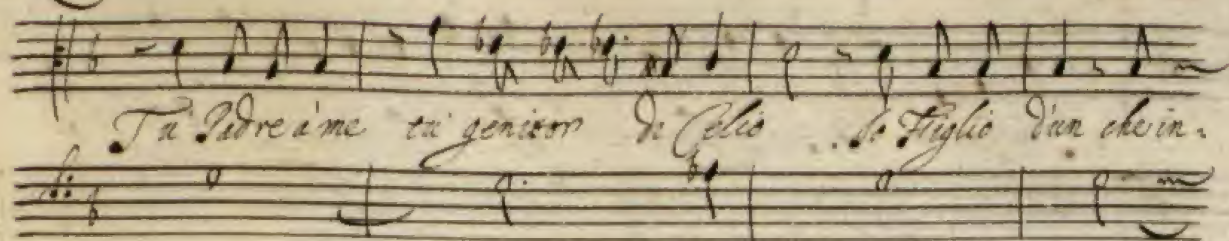 Tu Padre à me tu genitor di Celio .. Io Figlio d'un che in-